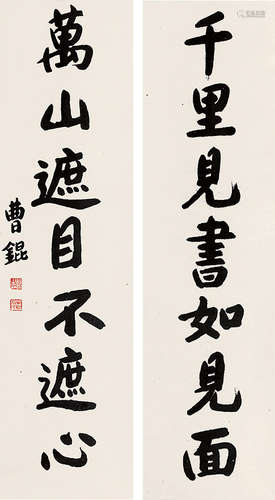 千里見書如見面
萬山遮目不遮心
曹錕